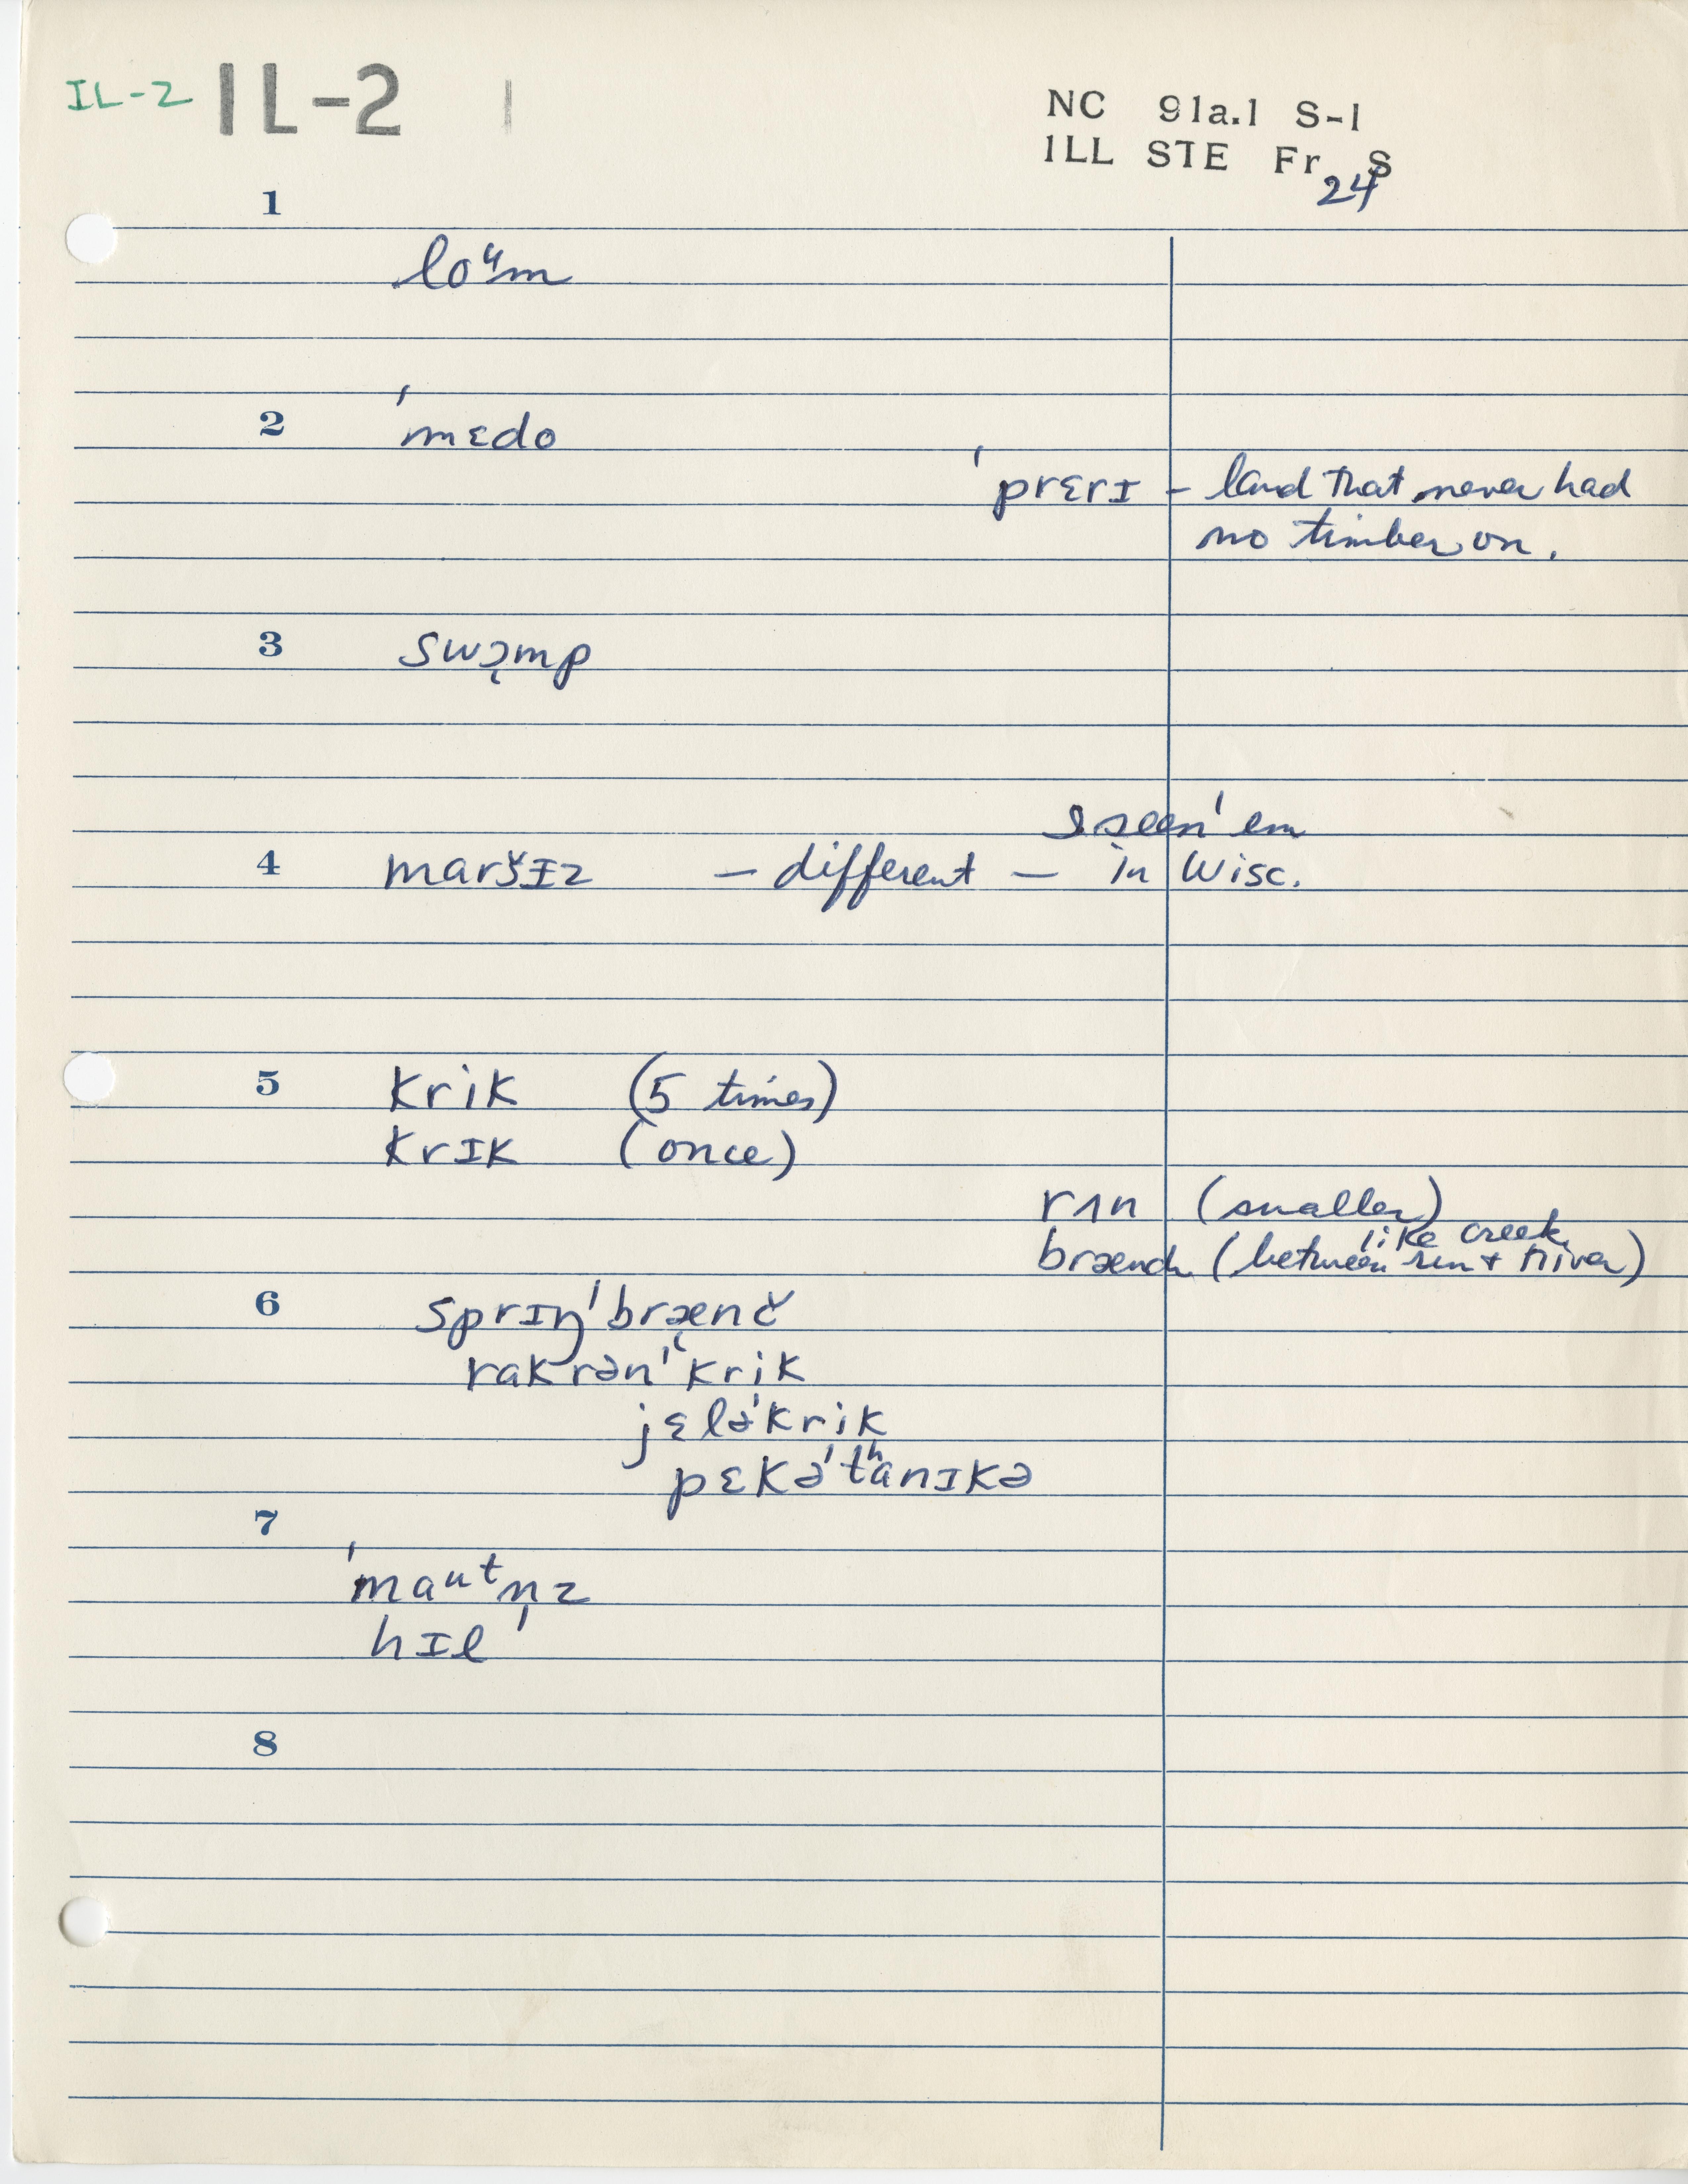 IL-2 IL-2 1
NC 91a.1 S-1
ILL STE Fr S
24
1
loᵘm
2 ˈmɛdo
ˈprɛrɪ - land that never had
no timber on.
3 swɔ̜mp
I seen 'em
4 maršɪz - different - in Wisc.
5 krik (5 times)
krɪk (once)
rʌn (smaller)
like creek
brænch (between run + river)
6 sprɪŋˈbræ̜nč
rakrənˈkrik
jɛləˈkrik
pɛkəˈtʰanɪkə
7
ˈmaᵘᵗn̩z
hɪl
8